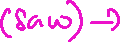 (saw) →